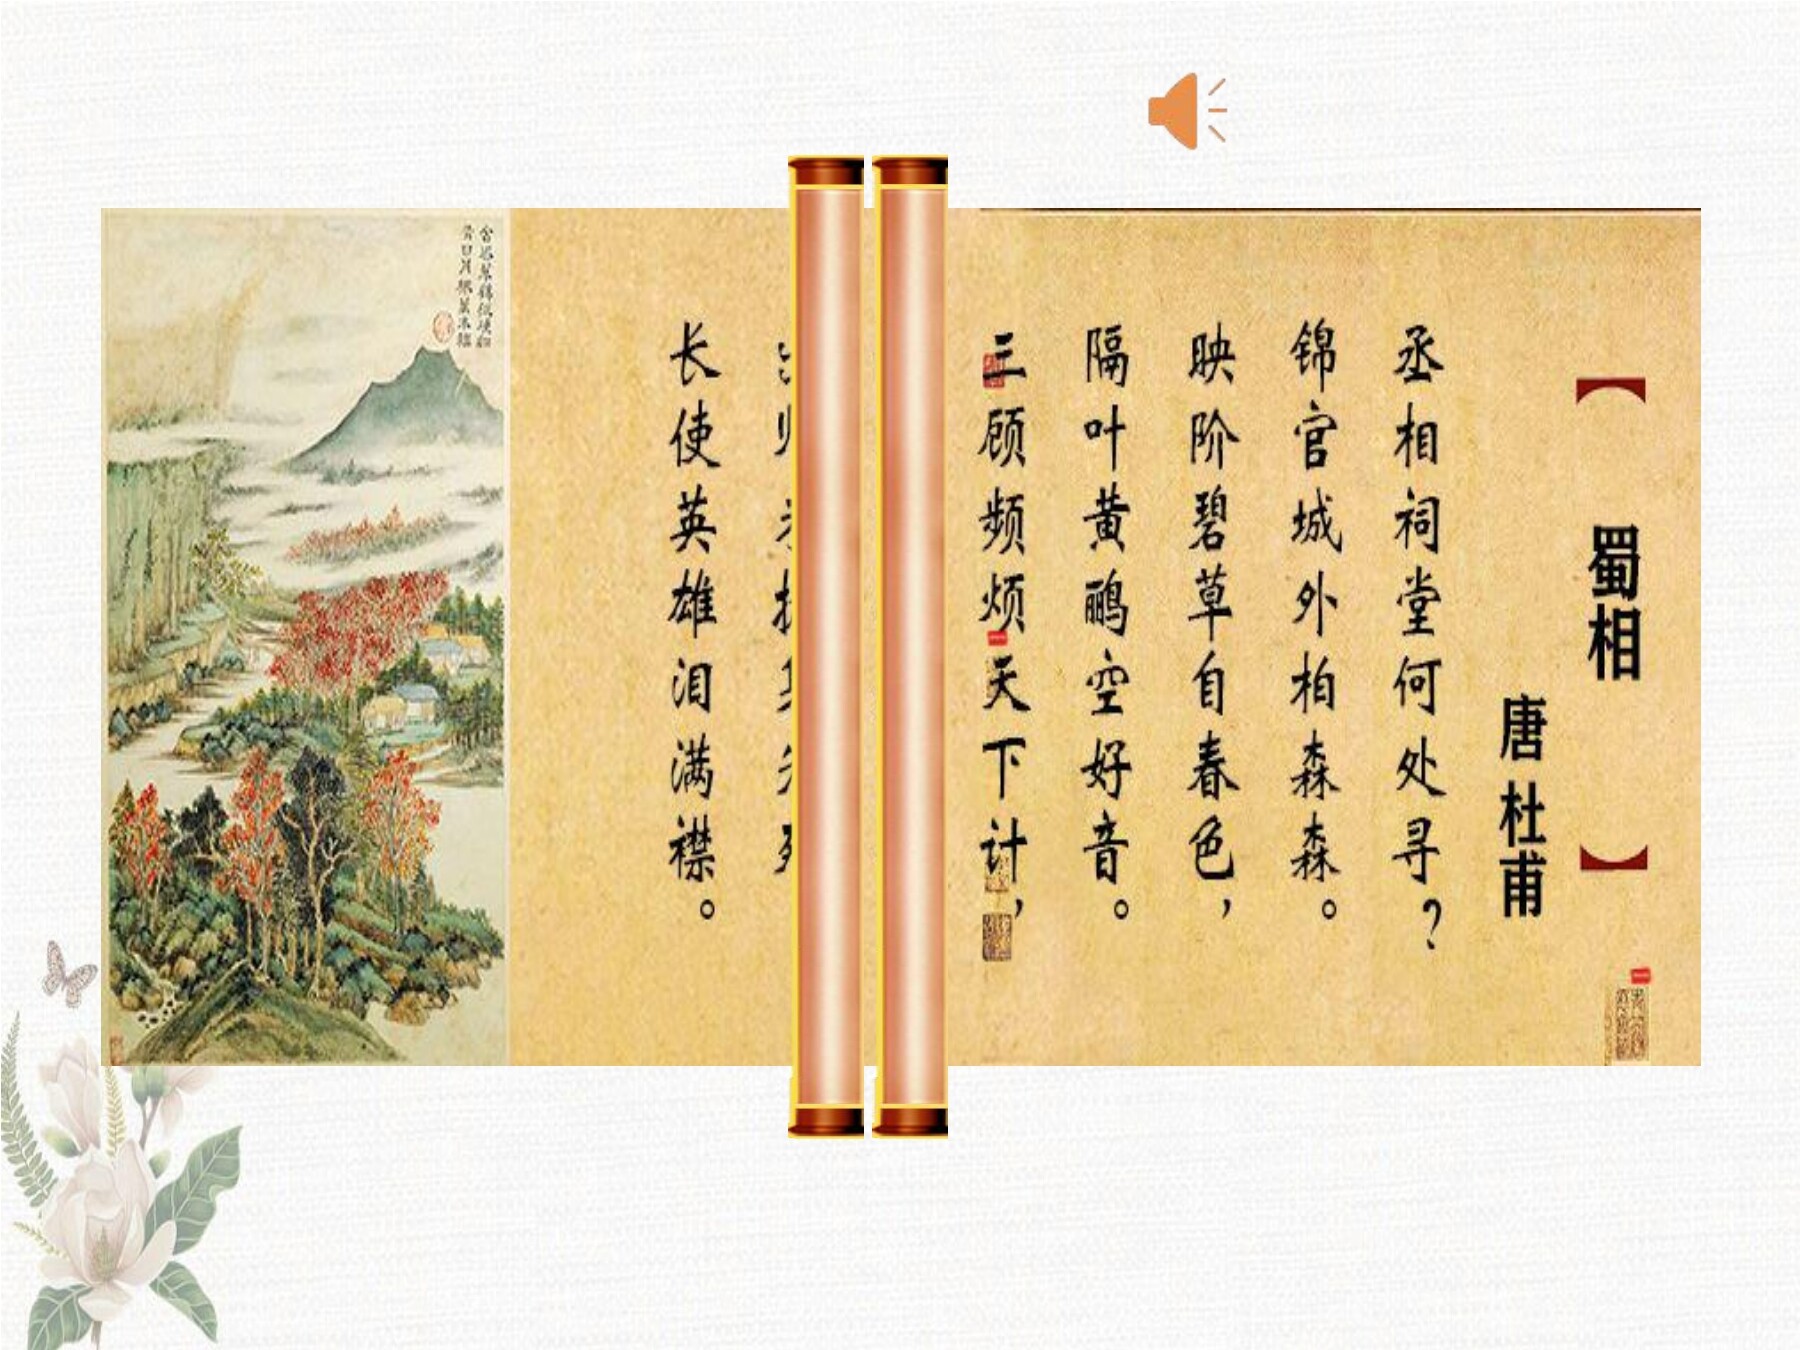 【蜀相】
唐 杜甫
丞相祠堂何处寻？
锦官城外柏森森。
映阶碧草自春色，
隔叶黄鹂空好音。
三顾频烦天下计，
长使英雄泪满襟。